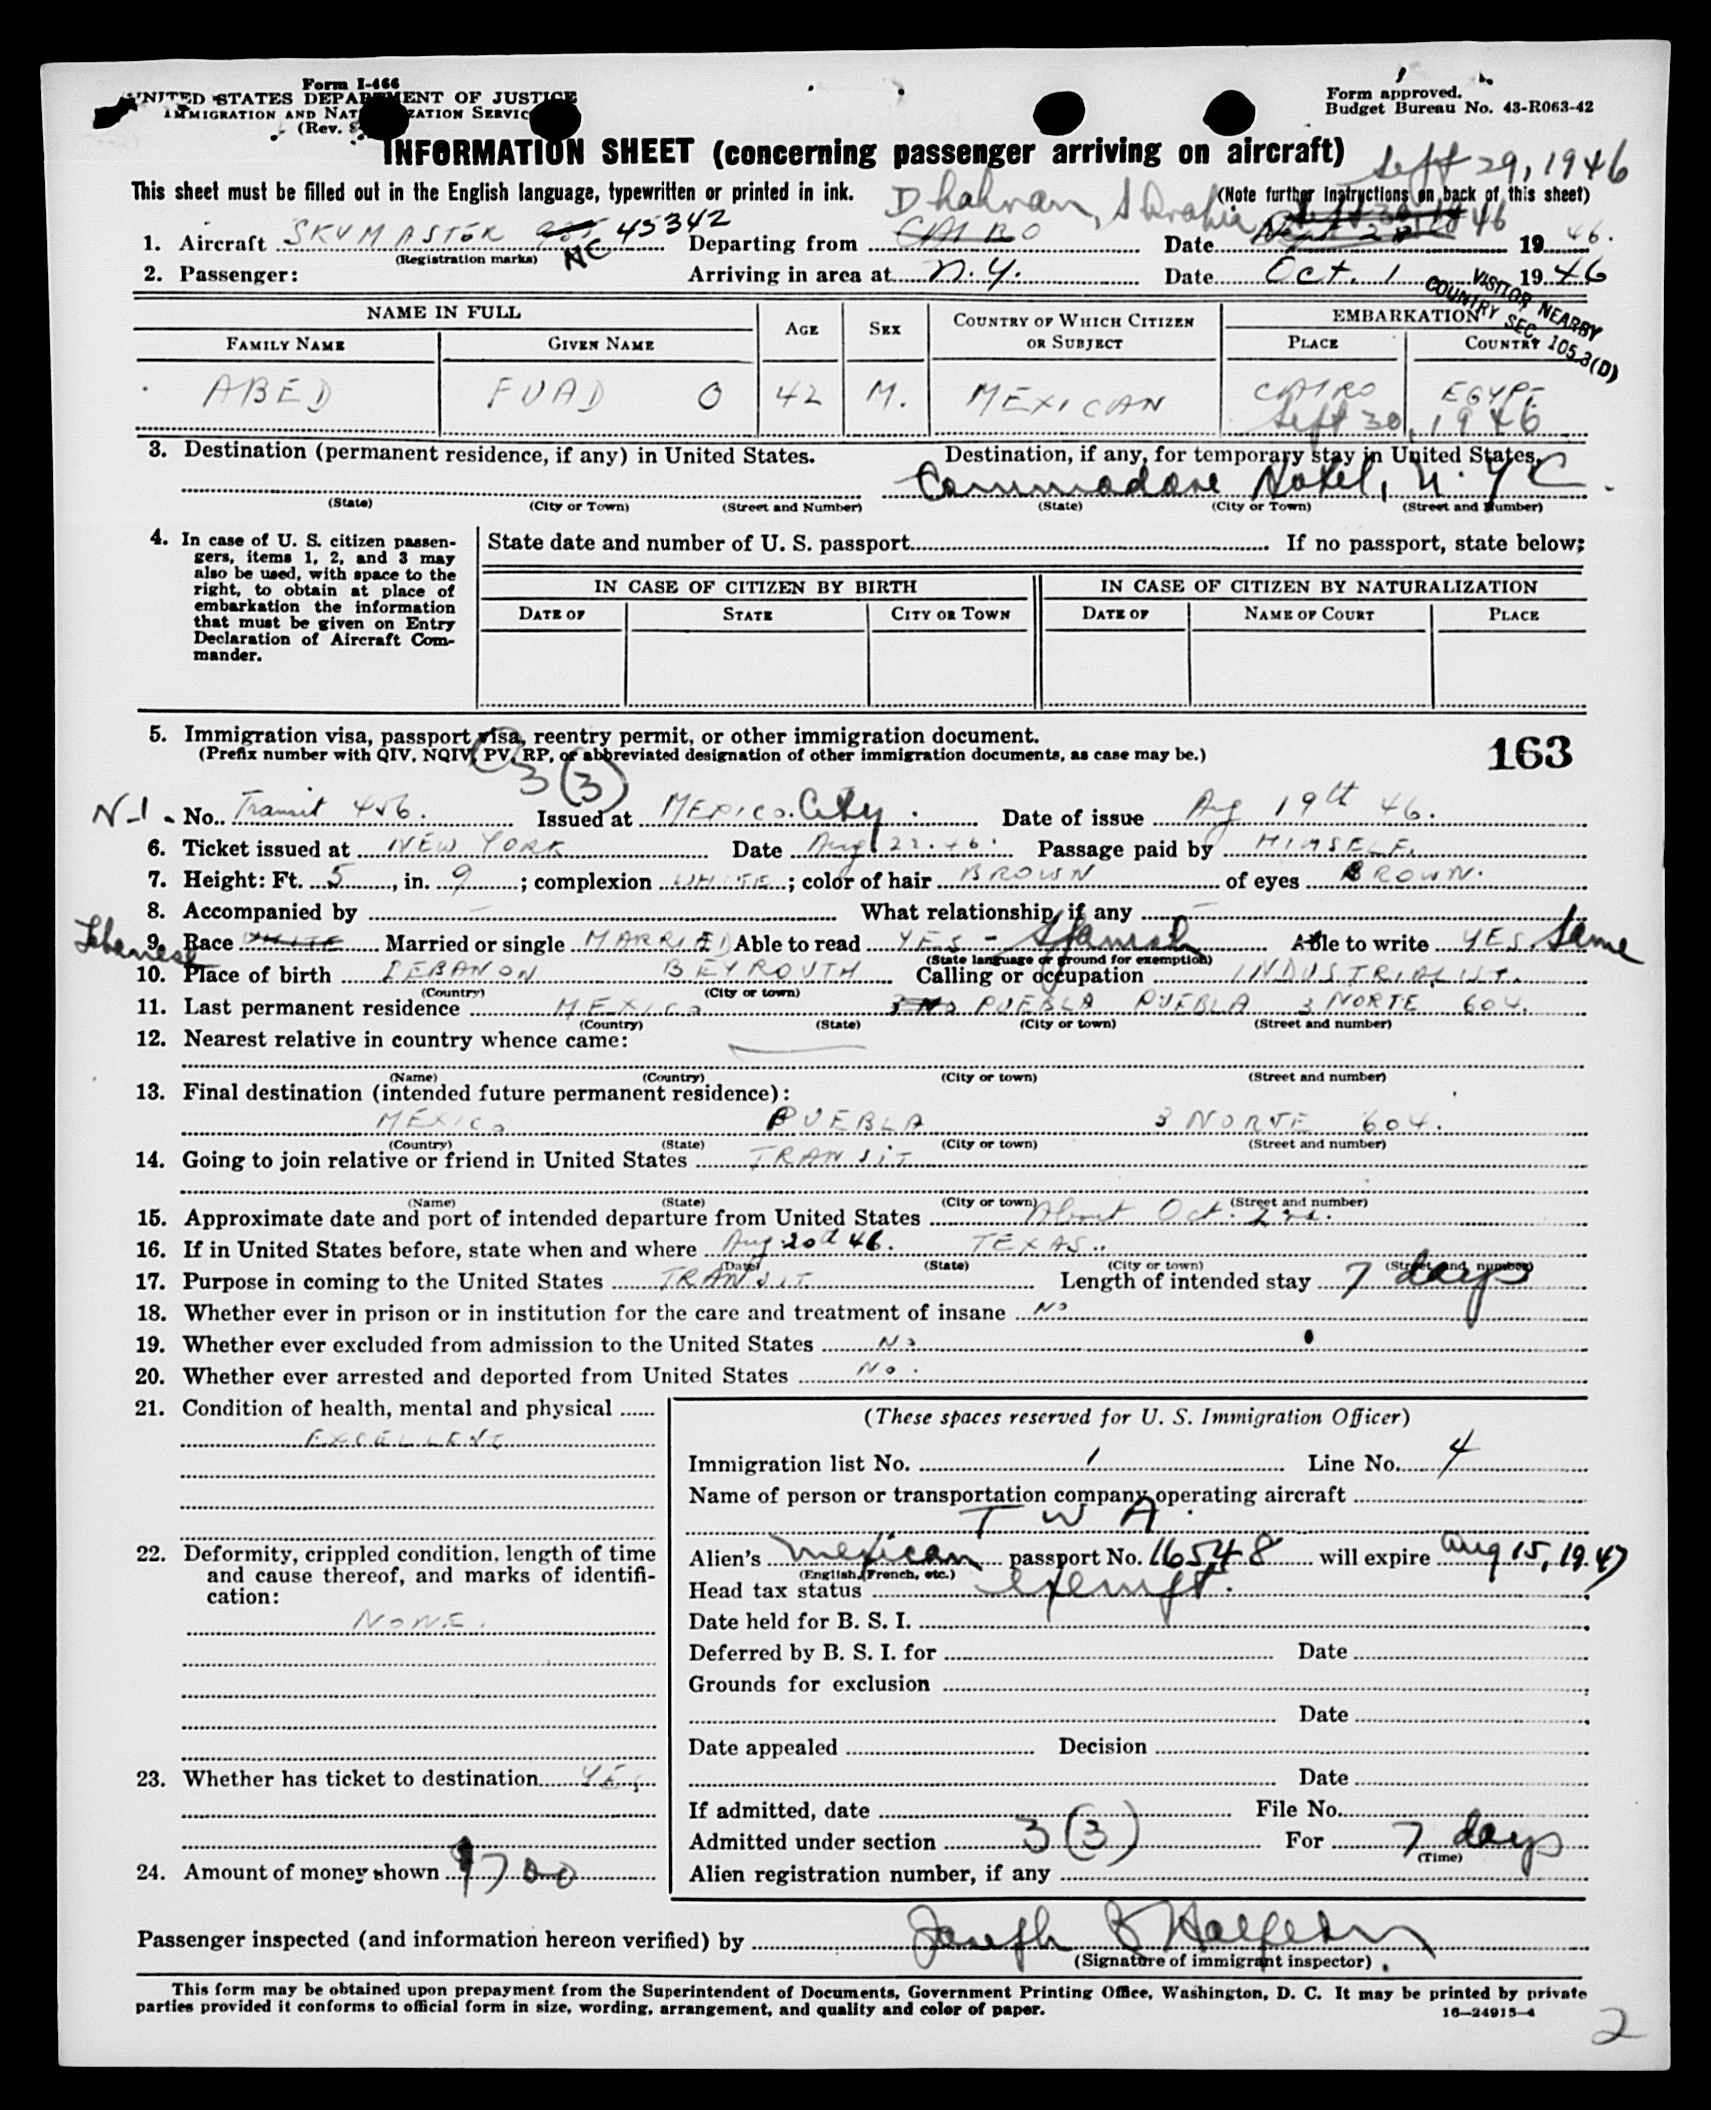 Form I-466
UNITED STATES DEPARTMENT OF JUSTICE
IMMIGRATION AND NATURALIZATION SERVICE
(Rev.
Form approved.
Budget Bureau No. 43-R063-42
INFORMATION SHEET (concerning passenger arriving on aircraft)
Sept 29, 1946
This sheet must be filled out in the English language, typewritten or printed in ink.
(Note further instructions on back of this sheet)
Dhahran, Arabia
1. Aircraft SKYMASTER NC 45342 Departing from CAIRO Date 46 1946.
(Registration marks)
2. Passenger: Arriving in area at N.Y. Date Oct. 1 1946
VISITOR NEARBY
COUNTRY SEC. 105.3(D)
NAME IN FULL AGE SEX COUNTRY OF WHICH CITIZEN OR SUBJECT EMBARKATION
FAMILY NAME GIVEN NAME PLACE COUNTRY
ABED FUAD O 42 M. MEXICAN CAIRO EGYPT
Sept 30, 1946
3. Destination (permanent residence, if any) in United States. Destination, if any, for temporary stay in United States.
Commodore Hotel, N.Y.C.
(State) (City or Town) (Street and Number) (State) (City or Town) (Street and Number)
4. In case of U. S. citizen passengers, items 1, 2, and 3 may also be used, with space to the right, to obtain at place of embarkation the information that must be given on Entry Declaration of Aircraft Commander.
State date and number of U. S. passport If no passport, state below:
IN CASE OF CITIZEN BY BIRTH IN CASE OF CITIZEN BY NATURALIZATION
DATE OF STATE CITY OR TOWN DATE OF NAME OF COURT PLACE
5. Immigration visa, passport visa, reentry permit, or other immigration document.
(Prefix number with QIV, NQIV, PV, RP, or abbreviated designation of other immigration documents, as case may be.)
163
3(3)
N-1 No. Transit 456. Issued at MEXICO City. Date of issue Aug 19th 46.
6. Ticket issued at NEW YORK Date Aug 22. 46. Passage paid by HIMSELF.
7. Height: Ft. 5, in. 9; complexion WHITE; color of hair BROWN of eyes BROWN.
8. Accompanied by — What relationship, if any —
Lebanese
9. Race WHITE Married or single MARRIED Able to read YES - Spanish Able to write YES. Same
(State language or ground for exemption)
10. Place of birth LEBANON BEYROUTH Calling or occupation INDUSTRIALIST.
(Country) (City or town)
11. Last permanent residence MEXICO PUEBLA PUEBLA 3 NORTE 604.
(Country) (State) (City or town) (Street and number)
12. Nearest relative in country whence came: —
(Name) (Country) (City or town) (Street and number)
13. Final destination (intended future permanent residence):
MEXICO PUEBLA 3 NORTE 604.
(Country) (State) (City or town) (Street and number)
14. Going to join relative or friend in United States TRANSIT
(Name) (State) (City or town) (Street and number)
15. Approximate date and port of intended departure from United States About Oct. 2nd.
16. If in United States before, state when and where Aug. 20d 46. TEXAS.
(Date) (State) (City or town) (Street and number)
17. Purpose in coming to the United States TRANSIT Length of intended stay 7 days
18. Whether ever in prison or in institution for the care and treatment of insane NO
19. Whether ever excluded from admission to the United States NO
20. Whether ever arrested and deported from United States NO.
21. Condition of health, mental and physical
EXCELLENT
22. Deformity, crippled condition, length of time and cause thereof, and marks of identification:
NONE.
23. Whether has ticket to destination YES
24. Amount of money shown $700
(These spaces reserved for U. S. Immigration Officer)
Immigration list No. 1 Line No. 4
Name of person or transportation company operating aircraft
T W A.
Alien's Mexican passport No. 116548 will expire Aug 15, 1947
(English, French, etc.)
Head tax status exempt.
Date held for B. S. I.
Deferred by B. S. I. for Date
Grounds for exclusion
Date
Date appealed Decision
Date
If admitted, date File No.
Admitted under section 3(3) For 7 days
(Time)
Alien registration number, if any
Passenger inspected (and information hereon verified) by Joseph B Halpern
(Signature of immigrant inspector)
This form may be obtained upon prepayment from the Superintendent of Documents, Government Printing Office, Washington, D. C. It may be printed by private
parties provided it conforms to official form in size, wording, arrangement, and quality and color of paper.
16—24915-4
2